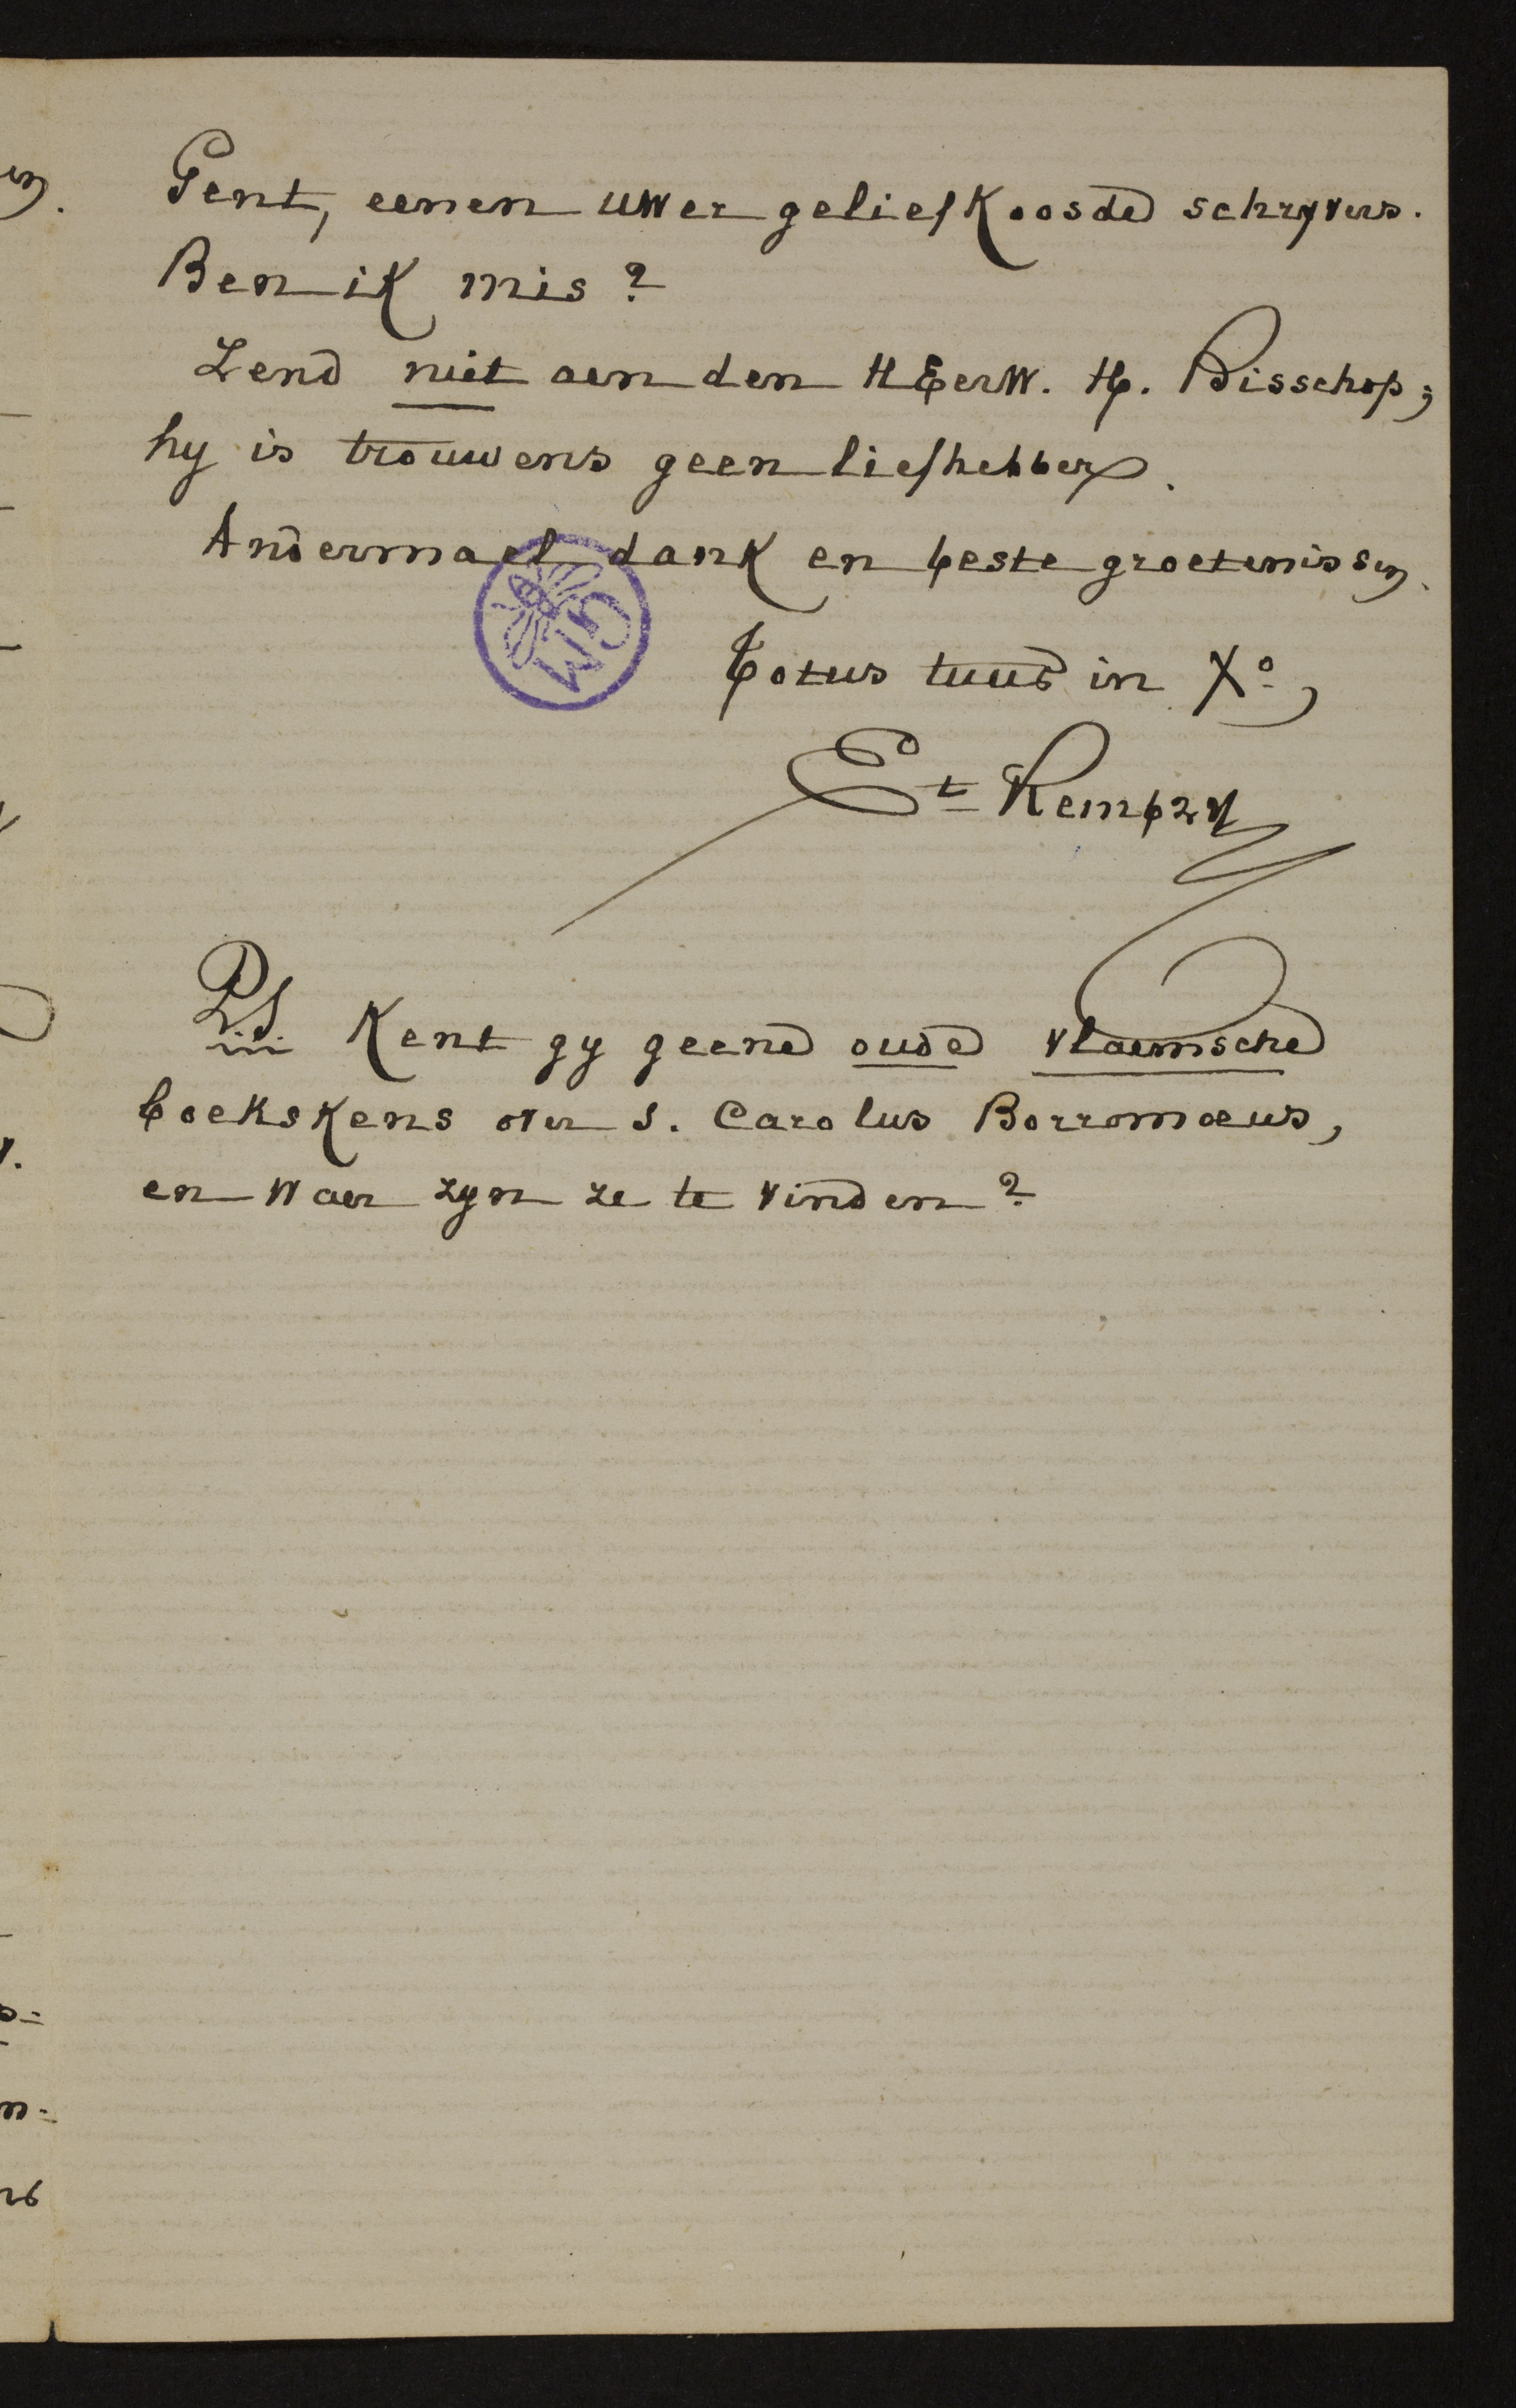 Gent, eenen uwer geliefkoosde schryvers.
Ben ik mis?
Zend niet aen den HEerw. H. Bisschop;
hy is trouwens geen liefhebber.
Andermael dank en beste groetenissen.
Totus tuus in Xo,
Et Kempzy
P.S. Kent gy geene oude vlaemsche
boekskens over S. Carolus Borromæus,
en waer zyn ze te vinden?